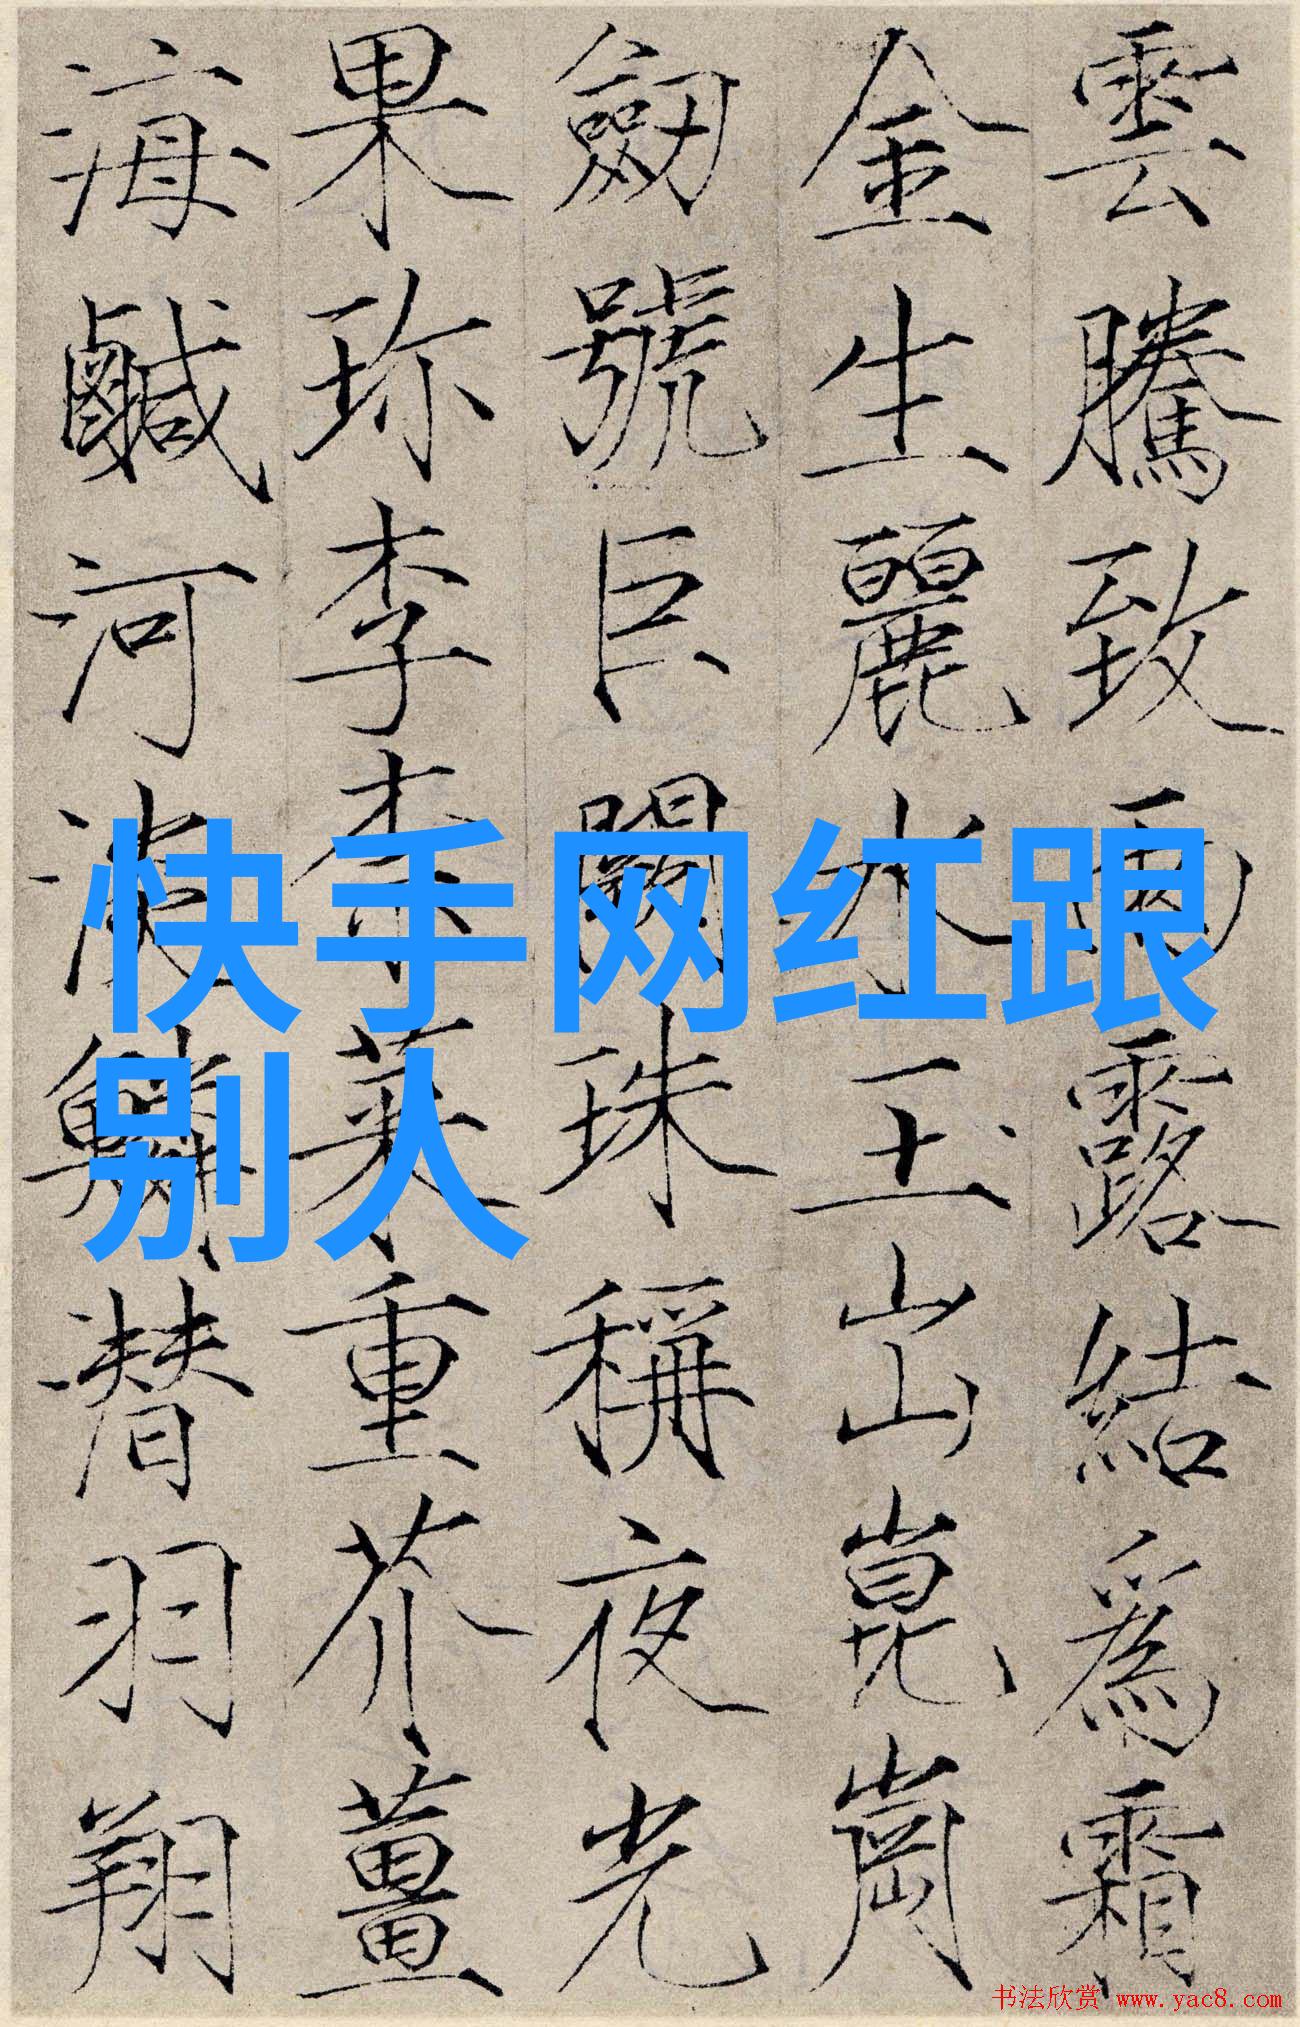 雲騰致雨露結爲霜
金生麗水玉出崑崗
劒號巨闕珠稱夜光
果珎李柰菜重芥薑
海鹹河淡鱗潜羽翔
快手网红跟
别人
书法欣赏 www.yac8.com